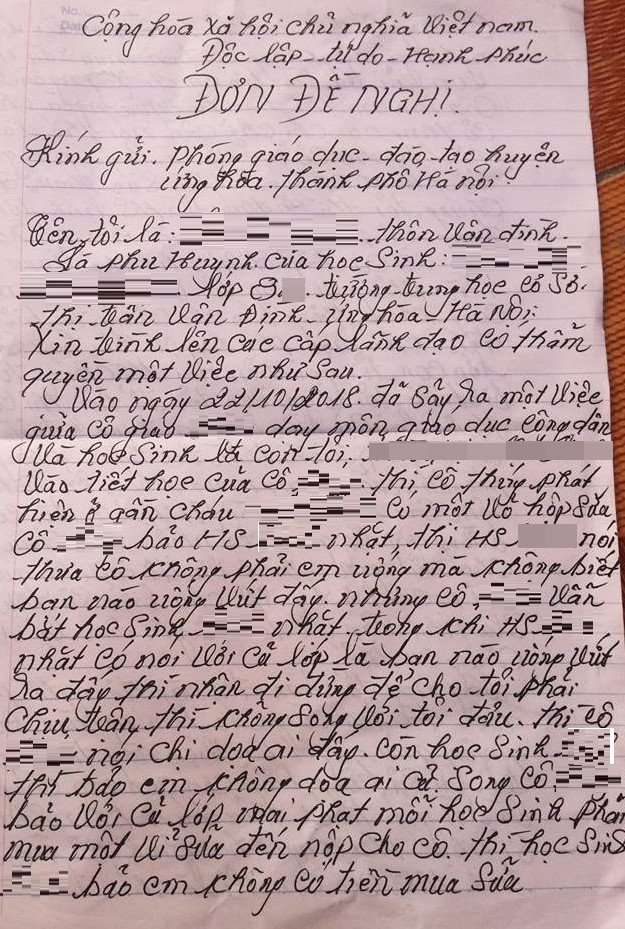 No.
Cộng hòa xã hội chủ nghĩa Việt nam.
Độc lập - tự do - Hạnh phúc
ĐƠN ĐỀ NGHỊ.
Kính gửi. Phòng giáo dục - đào tạo huyện
ứng hòa. thành phố Hà nội.
Tên tôi là: thôn Vân đình.
Là phụ Huynh của học Sinh:
lớp 8 . trường trung học cơ sở.
thị trấn Vân Đình - ứng hòa - Hà Nội:
Xin trình lên các cấp lãnh đạo có thẩm
quyền một việc như sau.
Vào ngày 22/10/2018. đã sảy ra một việc
giữa cô giáo dạy môn giáo dục công dân
Và học Sinh là con tôi,
Vào tiết học của cô, thì cô thúy phát
hiện ở gần cháu có một vỏ hộp sữa
cô bảo HS nhặt, thì HS nói
thưa cô không phải em uống mà không biết
bạn nào uống vứt đấy. nhưng cô, vẫn
bắt học Sinh nhặt. trong khi HS
nhặt có nói với cả lớp là bạn nào uống vứt
ra đấy thì nhận đi đừng để cho tôi phải
chịu trận, thì không song với tôi đâu. thì cô
nói chi dọa ai đấy. còn học Sinh
thì bảo em không dọa ai cả. Song cô,
bảo với cả lớp mai phạt mỗi học Sinh phải
mua một vỉ sữa đến nộp cho cô. thì học Sinh
bảo em không có tiền mua sữa